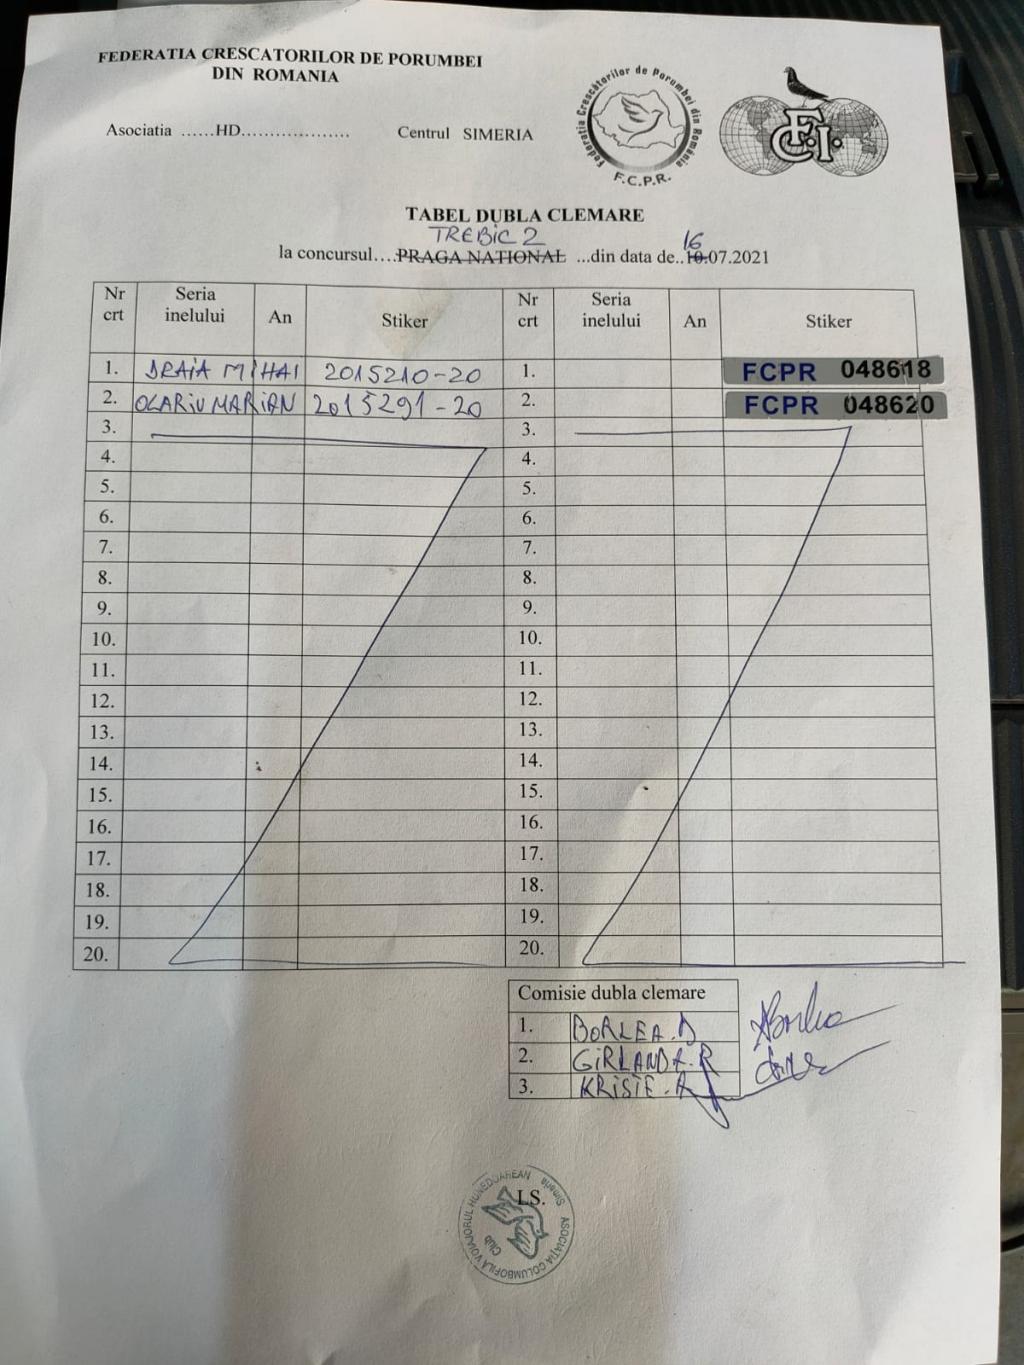 FEDERATIA CRESCATORILOR DE PORUMBEI
DIN ROMANIA
Asociatia ......HD...................
Centrul SIMERIA
Federatia Crescătorilor de Porumbei din România
F.C.P.R.
F.C.I.
TABEL DUBLA CLEMARE
TREBIC 2
16
la concursul....PRAGA NATIONAL ...din data de..10.07.2021
Nr crt Seria inelului An Stiker Nr crt Seria inelului An Stiker
1. DRAIA MIHAI 2015210-20 1. FCPR 048618
2. OLARIU MARIAN 2015291-20 2. FCPR 048620
3. 3.
4. 4.
5. 5.
6. 6.
7. 7.
8. 8.
9. 9.
10. 10.
11. 11.
12. 12.
13. 13.
14. 14.
15. 15.
16. 16.
17. 17.
18. 18.
19. 19.
20. 20.
Comisie dubla clemare
1. BORLEA.D
2. GIRLANDA.R
3. KRISTE.A
LS.
ASOCIATIA COLUMBOFILA VOIAJORUL HUNEDOREAN
Club Simeria